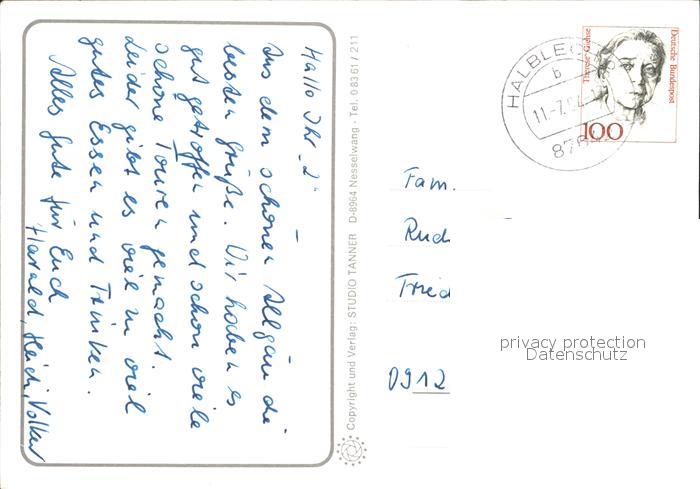 Hallo Ihr „2"
Aus dem schönen Allgäu die
besten Grüße. Wir haben es
gut getroffen und schon viele
schöne Touren gemacht.
Leider gibt es viel zu viel
gutes Essen und Trinken.
Alles Gute für Euch
Harald, Heidi, Volker
Copyright und Verlag: STUDIO TANNER D-8964 Nesselwang · Tel. 08361/211
HALBLEC
b
11.-7.
Therese Giehse
Deutsche Bundespost
100
Fam.
Rud
Fried
0912
privacy protection
Datenschutz